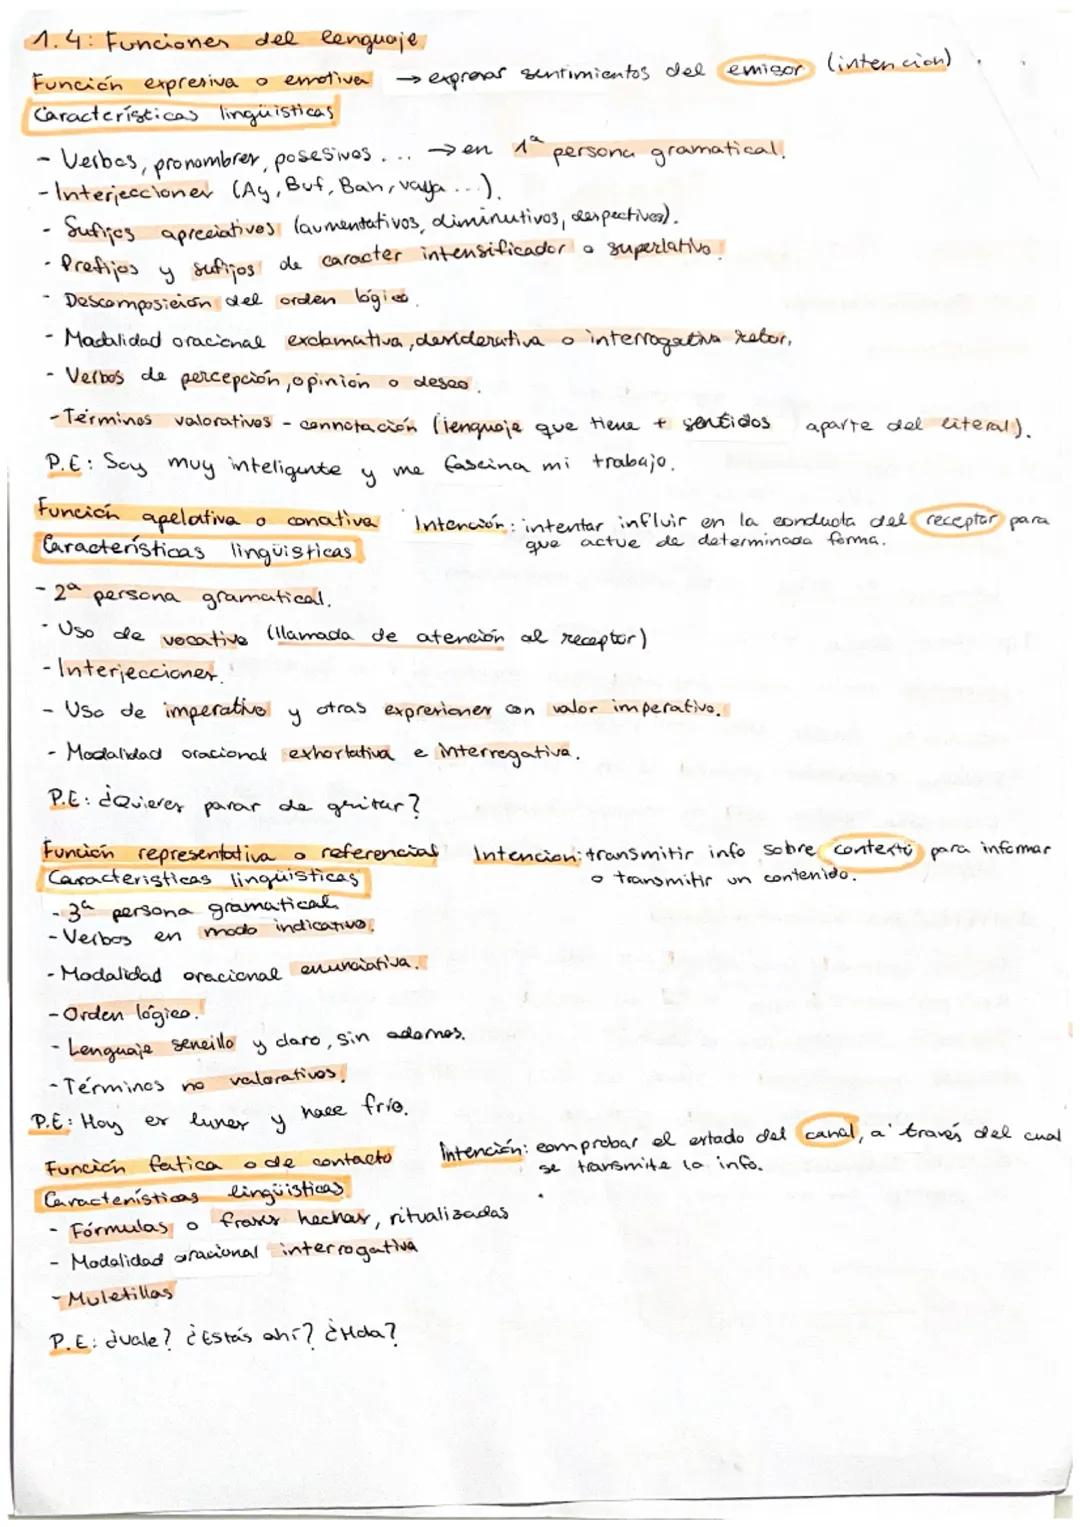 1.4: Funciones del lenguaje
Función expresiva o emotiva → expresar sentimientos del emisor (intención).
Características lingüísticas
- Verbos, pronombres, posesivos... → en 1ª persona gramatical.
- Interjecciones (Ay, Buf, Bah, vaya...).
- Sufijos apreciativos (aumentativos, diminutivos, despectivos).
- Prefijos y sufijos de caracter intensificador o superlativo.
- Descomposición del orden lógico.
- Modalidad oracional exclamativa, desiderativa o interrogativa retor.
- Verbos de percepción, opinión o deseo.
- Términos valorativos - connotación (lenguaje que tiene + sentidos aparte del literal).
P.E: Soy muy inteligente y me fascina mi trabajo.
Función apelativa o conativa Intención: intentar influir en la conducta del receptor para
que actue de determinada forma.
Características lingüisticas
- 2ª persona gramatical.
- Uso de vocativo (llamada de atención al receptor)
- Interjecciones.
- Uso de imperativo y otras expresiones con valor imperativo.
- Modalidad oracional exhortativa e interrogativa.
P.E: ¿Quieres parar de gritar?
Función representativa o referencial Intencion: transmitir info sobre contexto para informar
o transmitir un contenido.
Caracteristicas lingüisticas
- 3ª persona gramatical.
- Verbos en modo indicativo.
- Modalidad oracional enunciativa.
- Orden lógico.
- Lenguaje sencillo y claro, sin adornos.
- Términos no valorativos.
P.E: Hoy es lunes y hace frío.
Función fatica o de contacto Intención: comprobar el estado del canal, a través del cual
se transmite la info.
Características lingüísticas
- Fórmulas o frases hechas, ritualizadas
- Modalidad oracional interrogativa
- Muletillas
P.E: ¿Vale? ¿Estás ahí? ¿Hola?